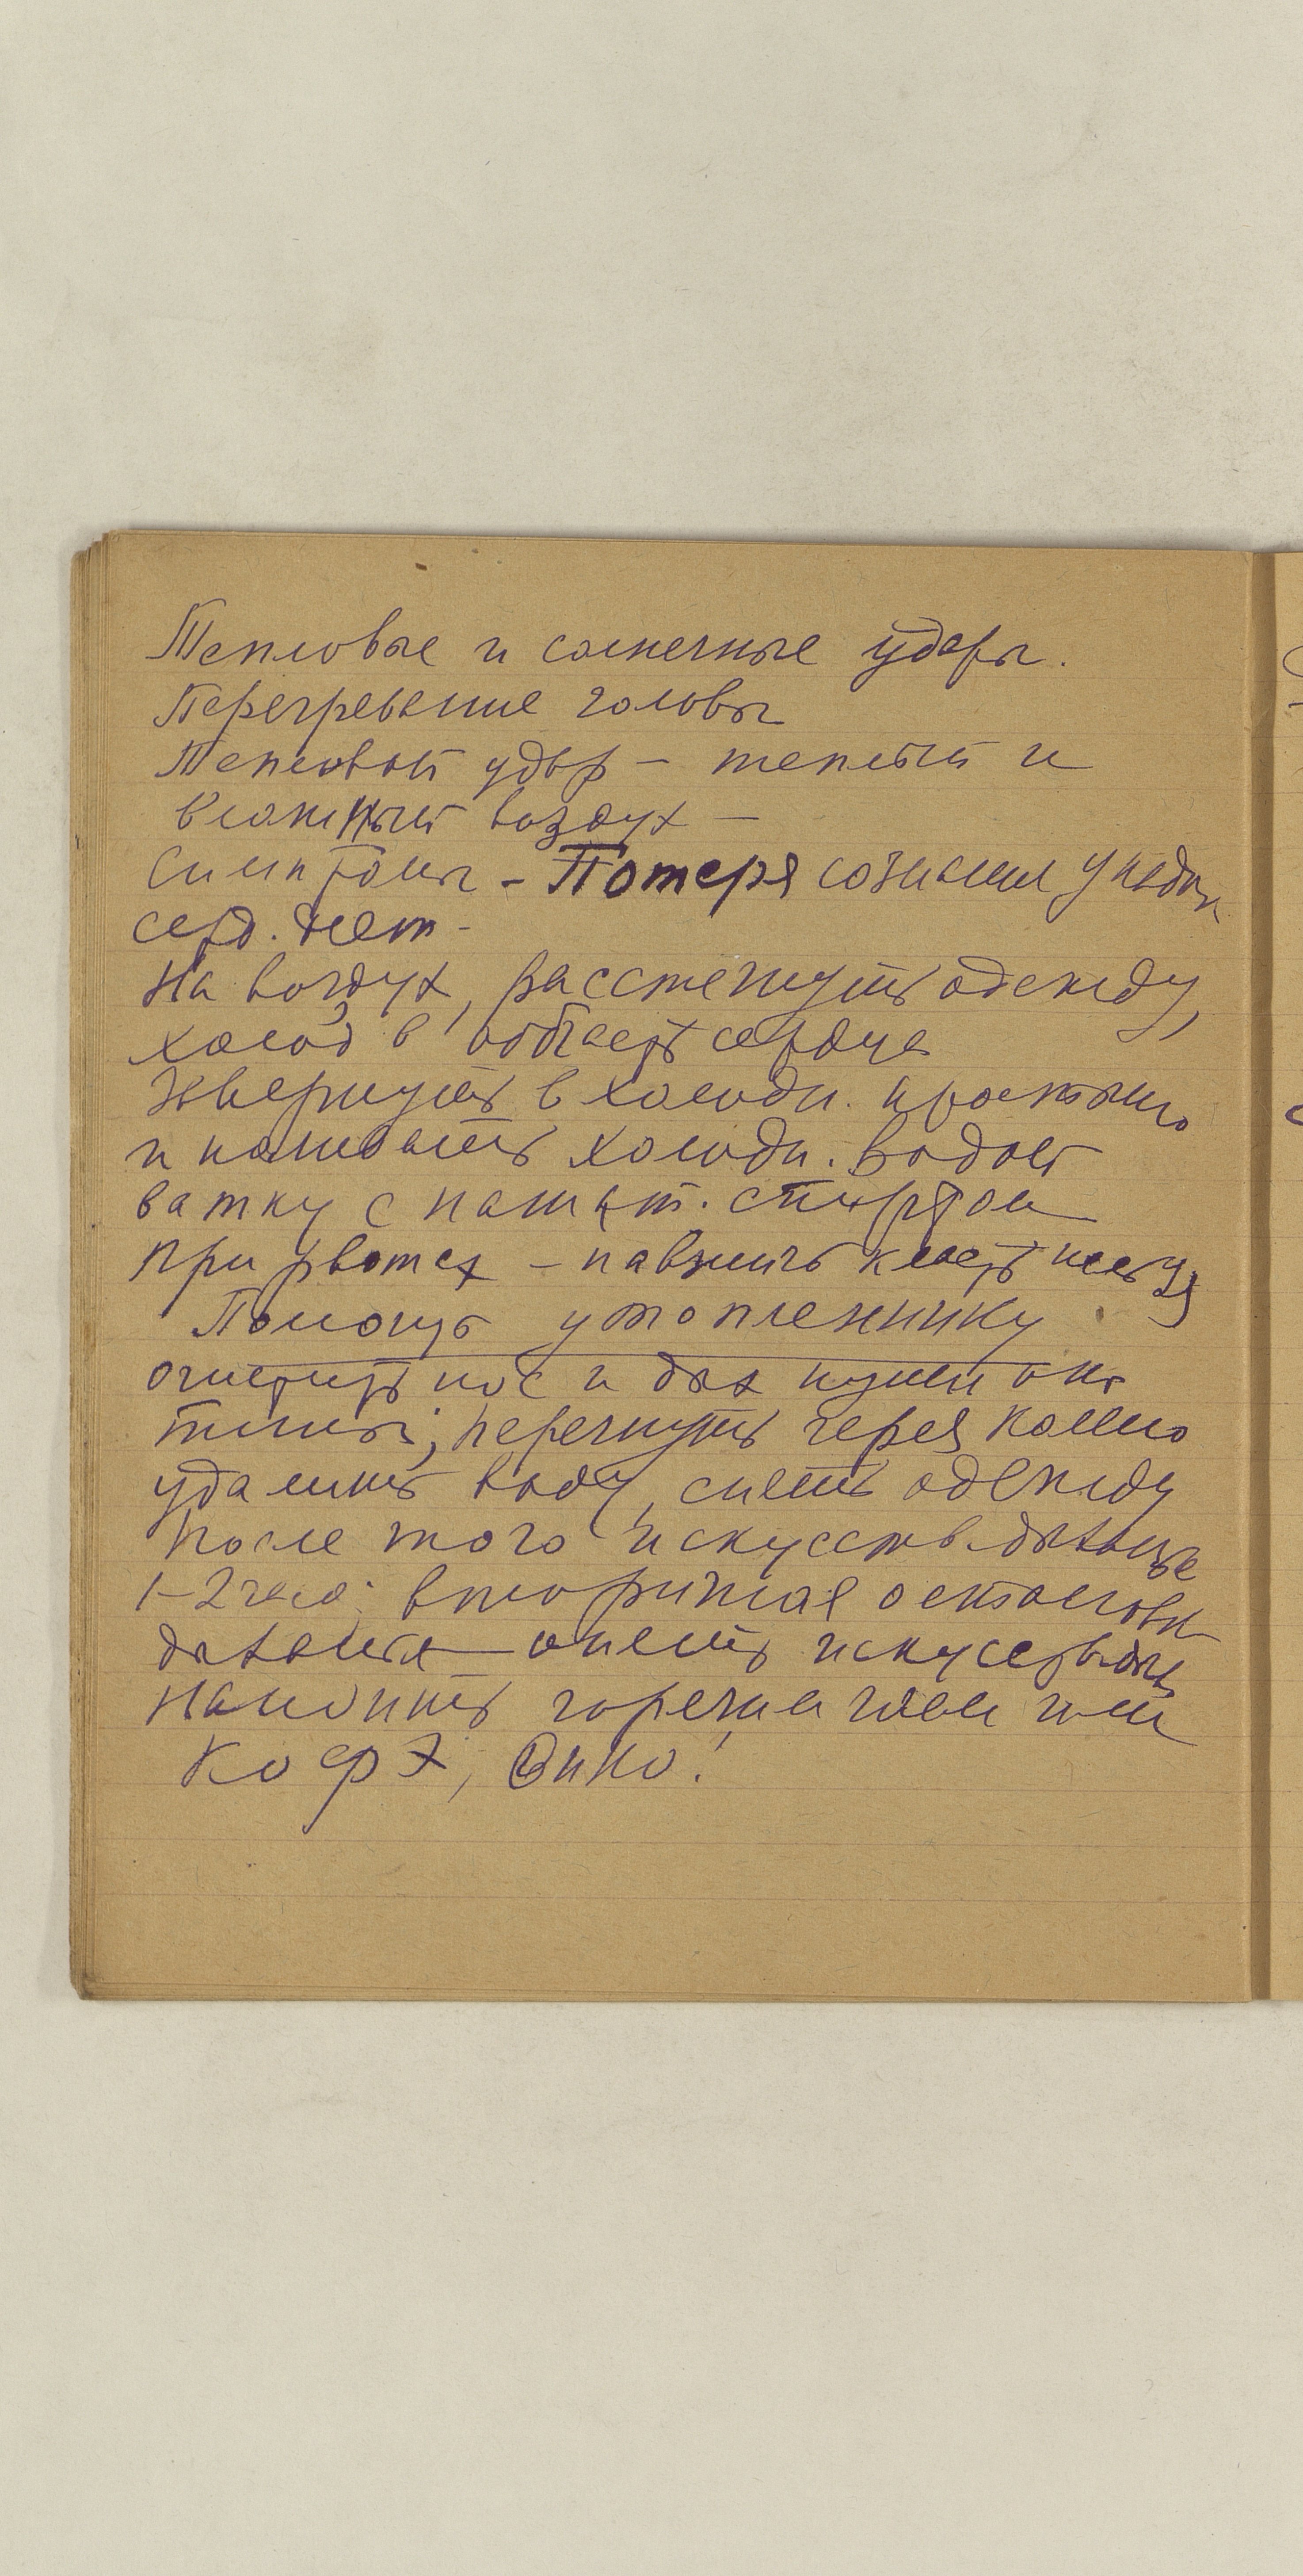 Тепловые и солнечные удары.
Перегревание головы
Тепловой удар – теплый и
влажный воздух –
Симптомы – Потеря сознания упадок
серд. деят –
На воздух, расстегнуть одежду,
холод в область сердца
Завернуть в холодн. простыню
и поливать холодн. водой
ватку с нашат. спиртом
при рвотах – класть нельзя
Помощь утопленнику
очистить нос и дых пути от
тины; перегнуть через колено
удалить воду, снять одежду
После того искусств. дыхание
1–2 часа; вторичная остановк
дыхания – опять искуств. дых
Напоить горячим чаем или
Кофэ, Вино!